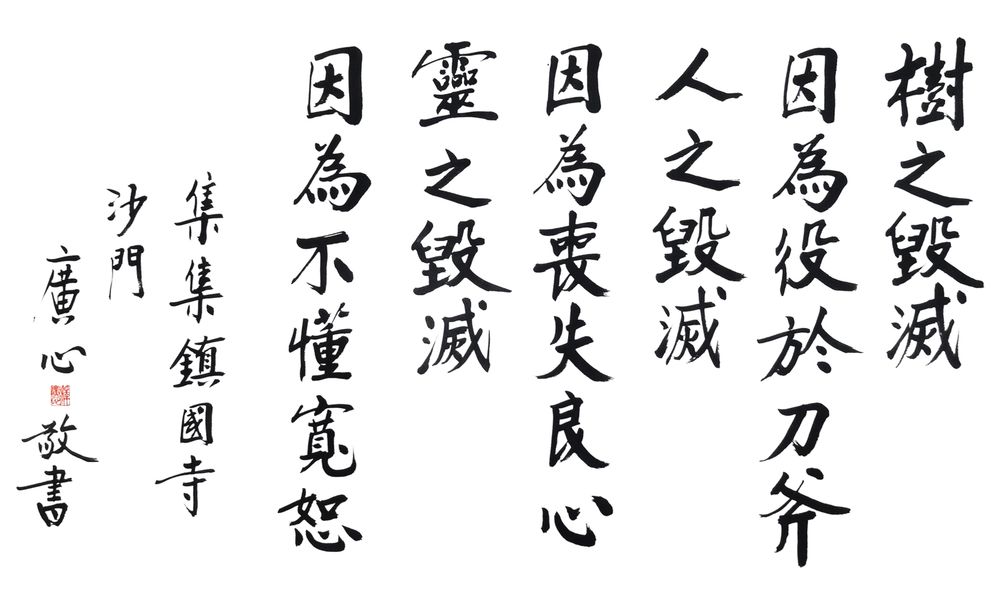 樹之毀滅
因為役於刀斧
人之毀滅
因為喪失良心
靈之毀滅
因為不懂寬恕
集集鎮國寺
沙門
廣心
敬書